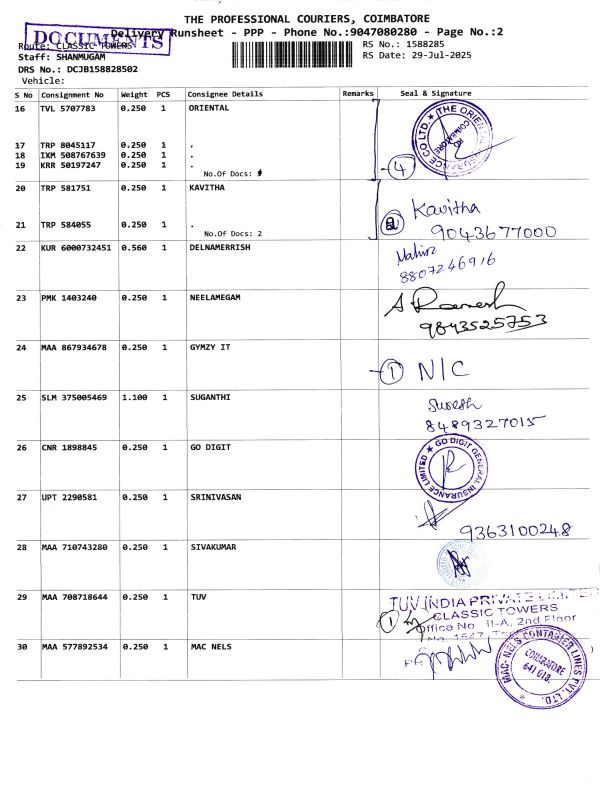 THE PROFESSIONAL COURIERS, COIMBATORE
DOCUMENTS
Delivery Runsheet - PPP - Phone No.:9047080280 - Page No.:2
Route: CLASSIC TOWERS
RS No.: 1588285
Staff: SHANMUGAM
RS Date: 29-Jul-2025
DRS No.: DCJB158828502
Vehicle:
S No Consignment No Weight PCS Consignee Details Remarks Seal & Signature
16 TVL 5707783 0.250 1 ORIENTAL
THE ORIENTAL INSURANCE CO LTD.
COIMBATORE
17 TRP 8045117 0.250 1 .
18 IXM 508767639 0.250 1 .
19 KRR 50197247 0.250 1 .
No.Of Docs:
4
20 TRP 581751 0.250 1 KAVITHA
Kavitha
21 TRP 584055 0.250 1 .
No.Of Docs: 2
9043677000
22 KUR 6000732451 0.560 1 DELNAMERRISH
8807246916
23 PMK 1403240 0.250 1 NEELAMEGAM
A Ramesh
9843525753
24 MAA 867934678 0.250 1 GYMZY IT
1 N/C
25 SLM 375005469 1.100 1 SUGANTHI
Suresh
8489327015
26 CNR 1898845 0.250 1 GO DIGIT
GO DIGIT GENERAL INSURANCE LIMITED
27 UPT 2290581 0.250 1 SRINIVASAN
9363100248
28 MAA 710743280 0.250 1 SIVAKUMAR
29 MAA 708718644 0.250 1 TUV
TUV INDIA PRIVATE LIMITED
CLASSIC TOWERS
1 Office No II-A, 2nd Floor
No. 1547
30 MAA 577892534 0.250 1 MAC NELS
MAC-NELS CONTAINER LINES PVT. LTD.
COIMBATORE
641 018.